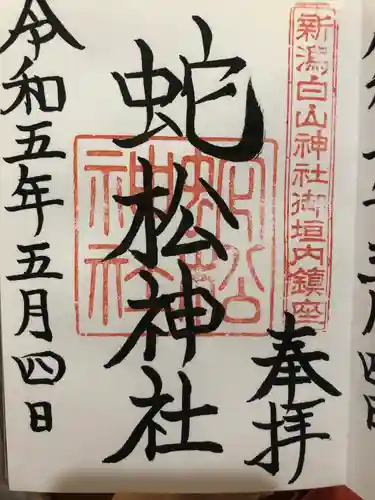 奉拝
新潟白山神社御垣内鎮座
蛇松神社
蛇松神社
令和五年五月四日